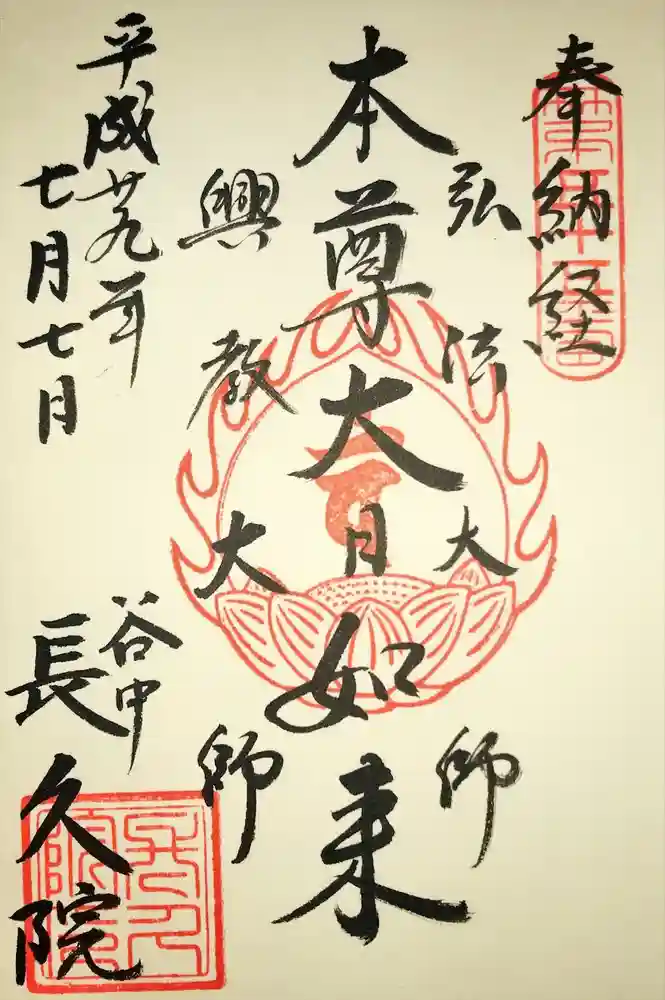 奉納経
弘法大師
本尊大日如来
興教大師
平成廿九年
七月七日
谷中
長久院